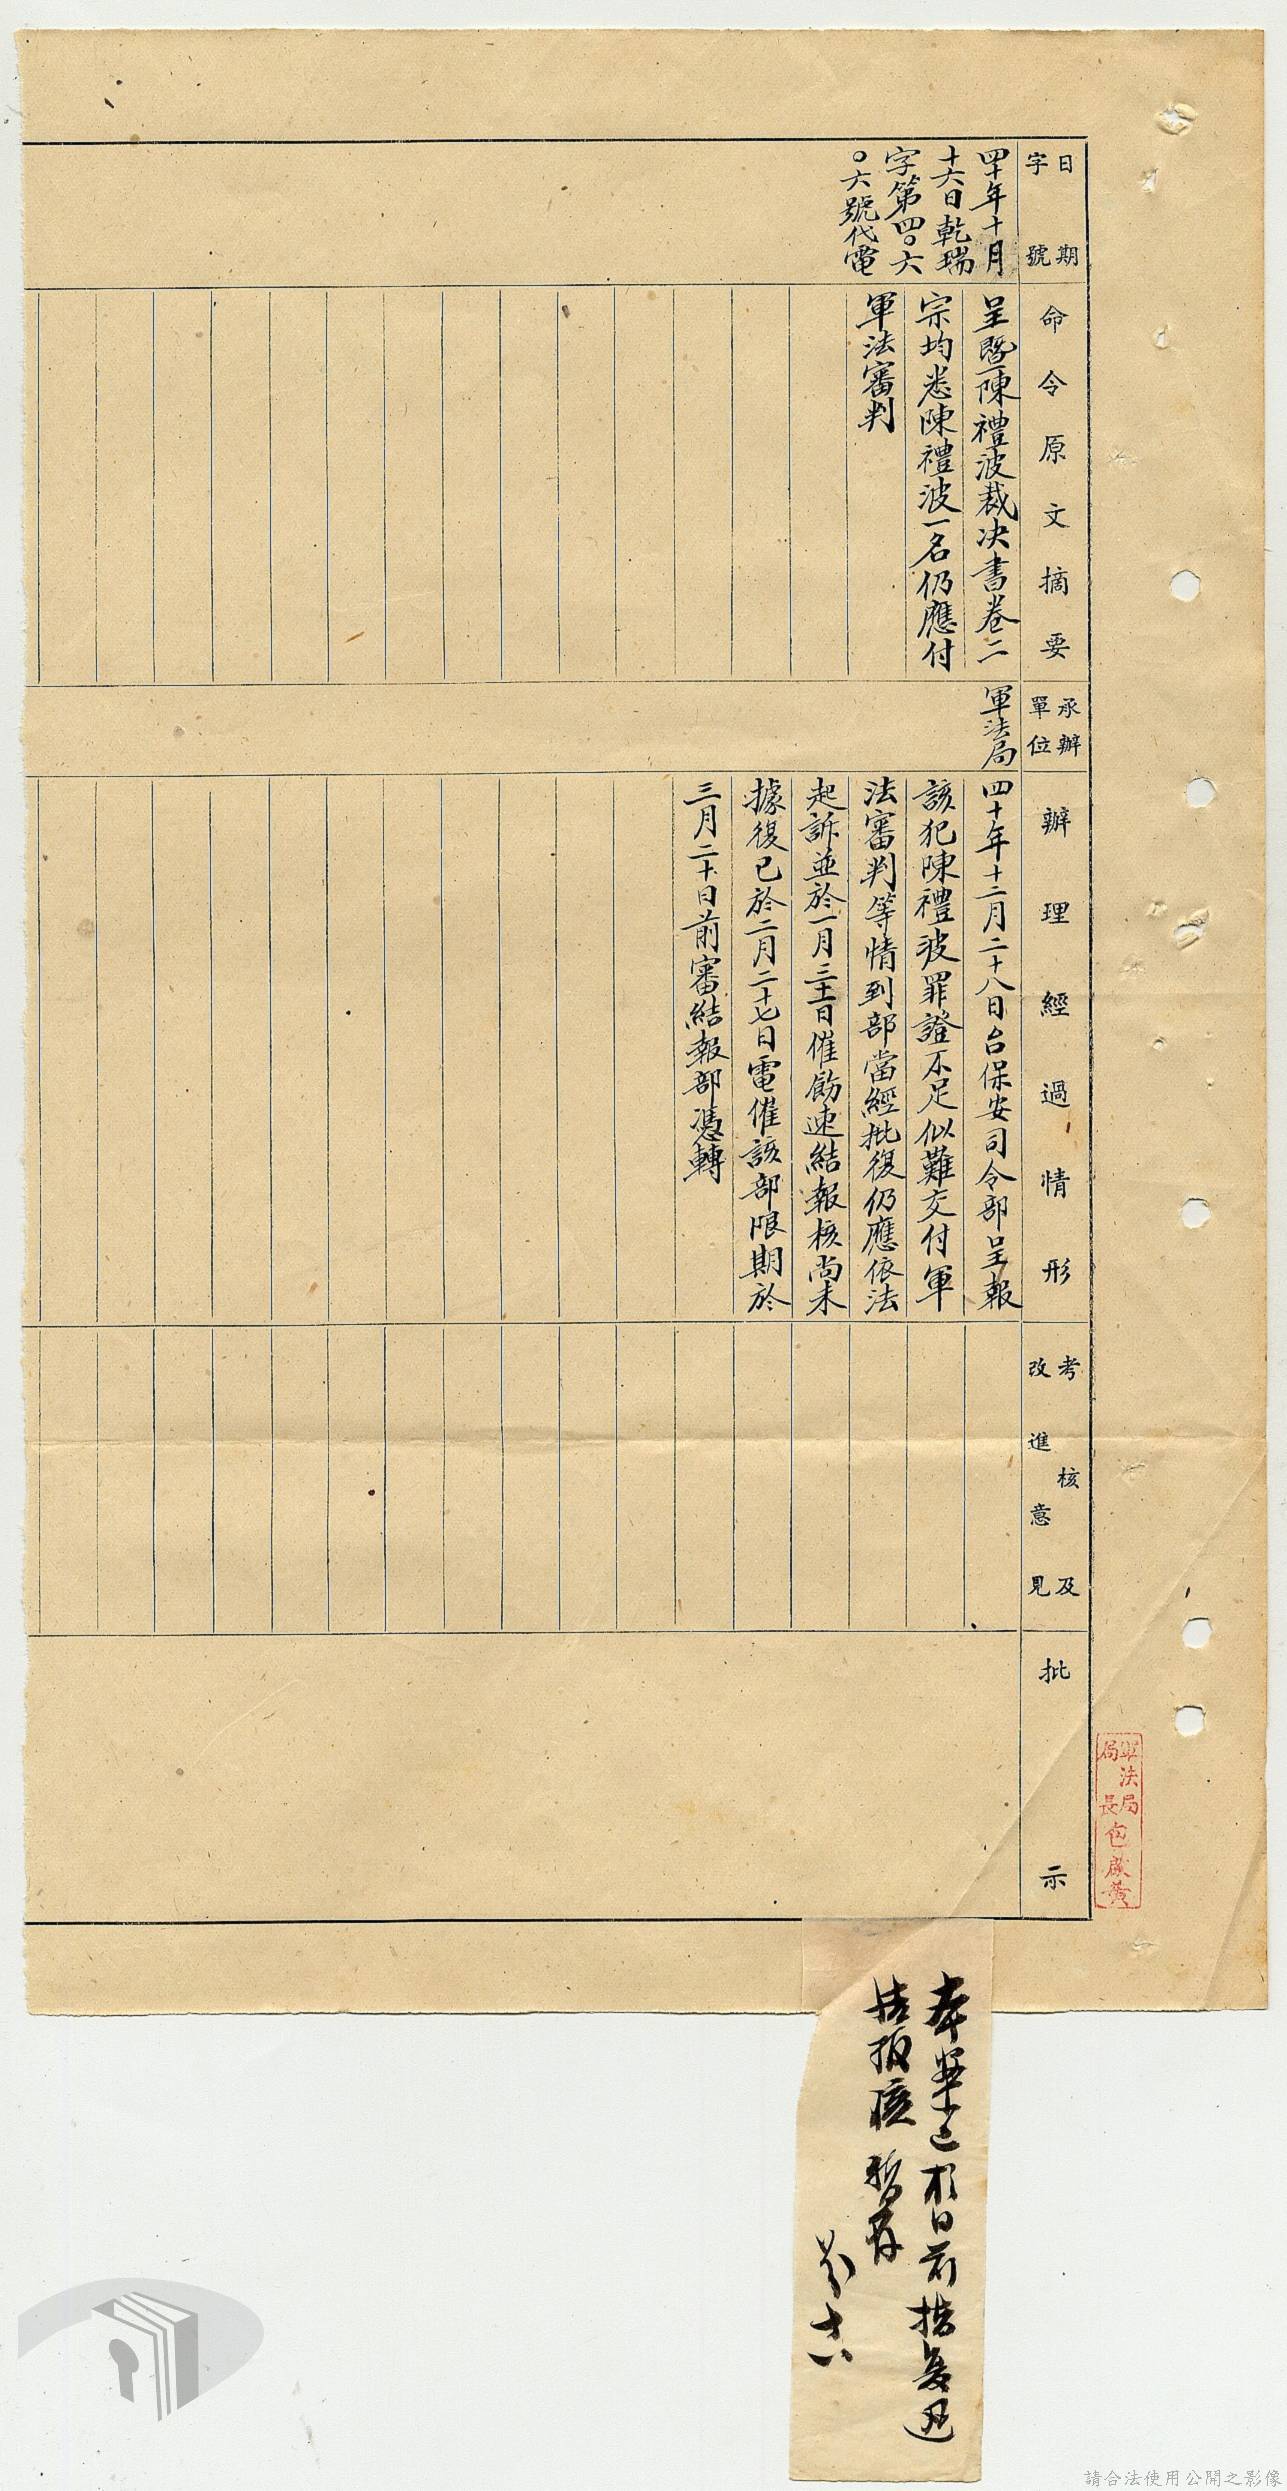 日期
字號
四十年十月
十六日乾瑞
字第四〇六
〇六號代電
命令原文摘要
呈暨陳禮波裁決書卷二
宗均悉陳禮波一名仍應付
軍法審判
承辦
單位
軍法局
辦理經過情形
四十年十二月二十八日台保安司令部呈報
該犯陳禮波罪證不足似難交付軍
法審判等情到部當經批復仍應依法
起訴並於一月三十一日催飭速結報核尚未
據復已於二月二十七日電催該部限期於
三月二十日前審結報部憑轉
考核及
改進意見
批示
軍法局
局長包啟黃
本案已於日前指復迅
結報核 暫存
請合法使用公開之影像